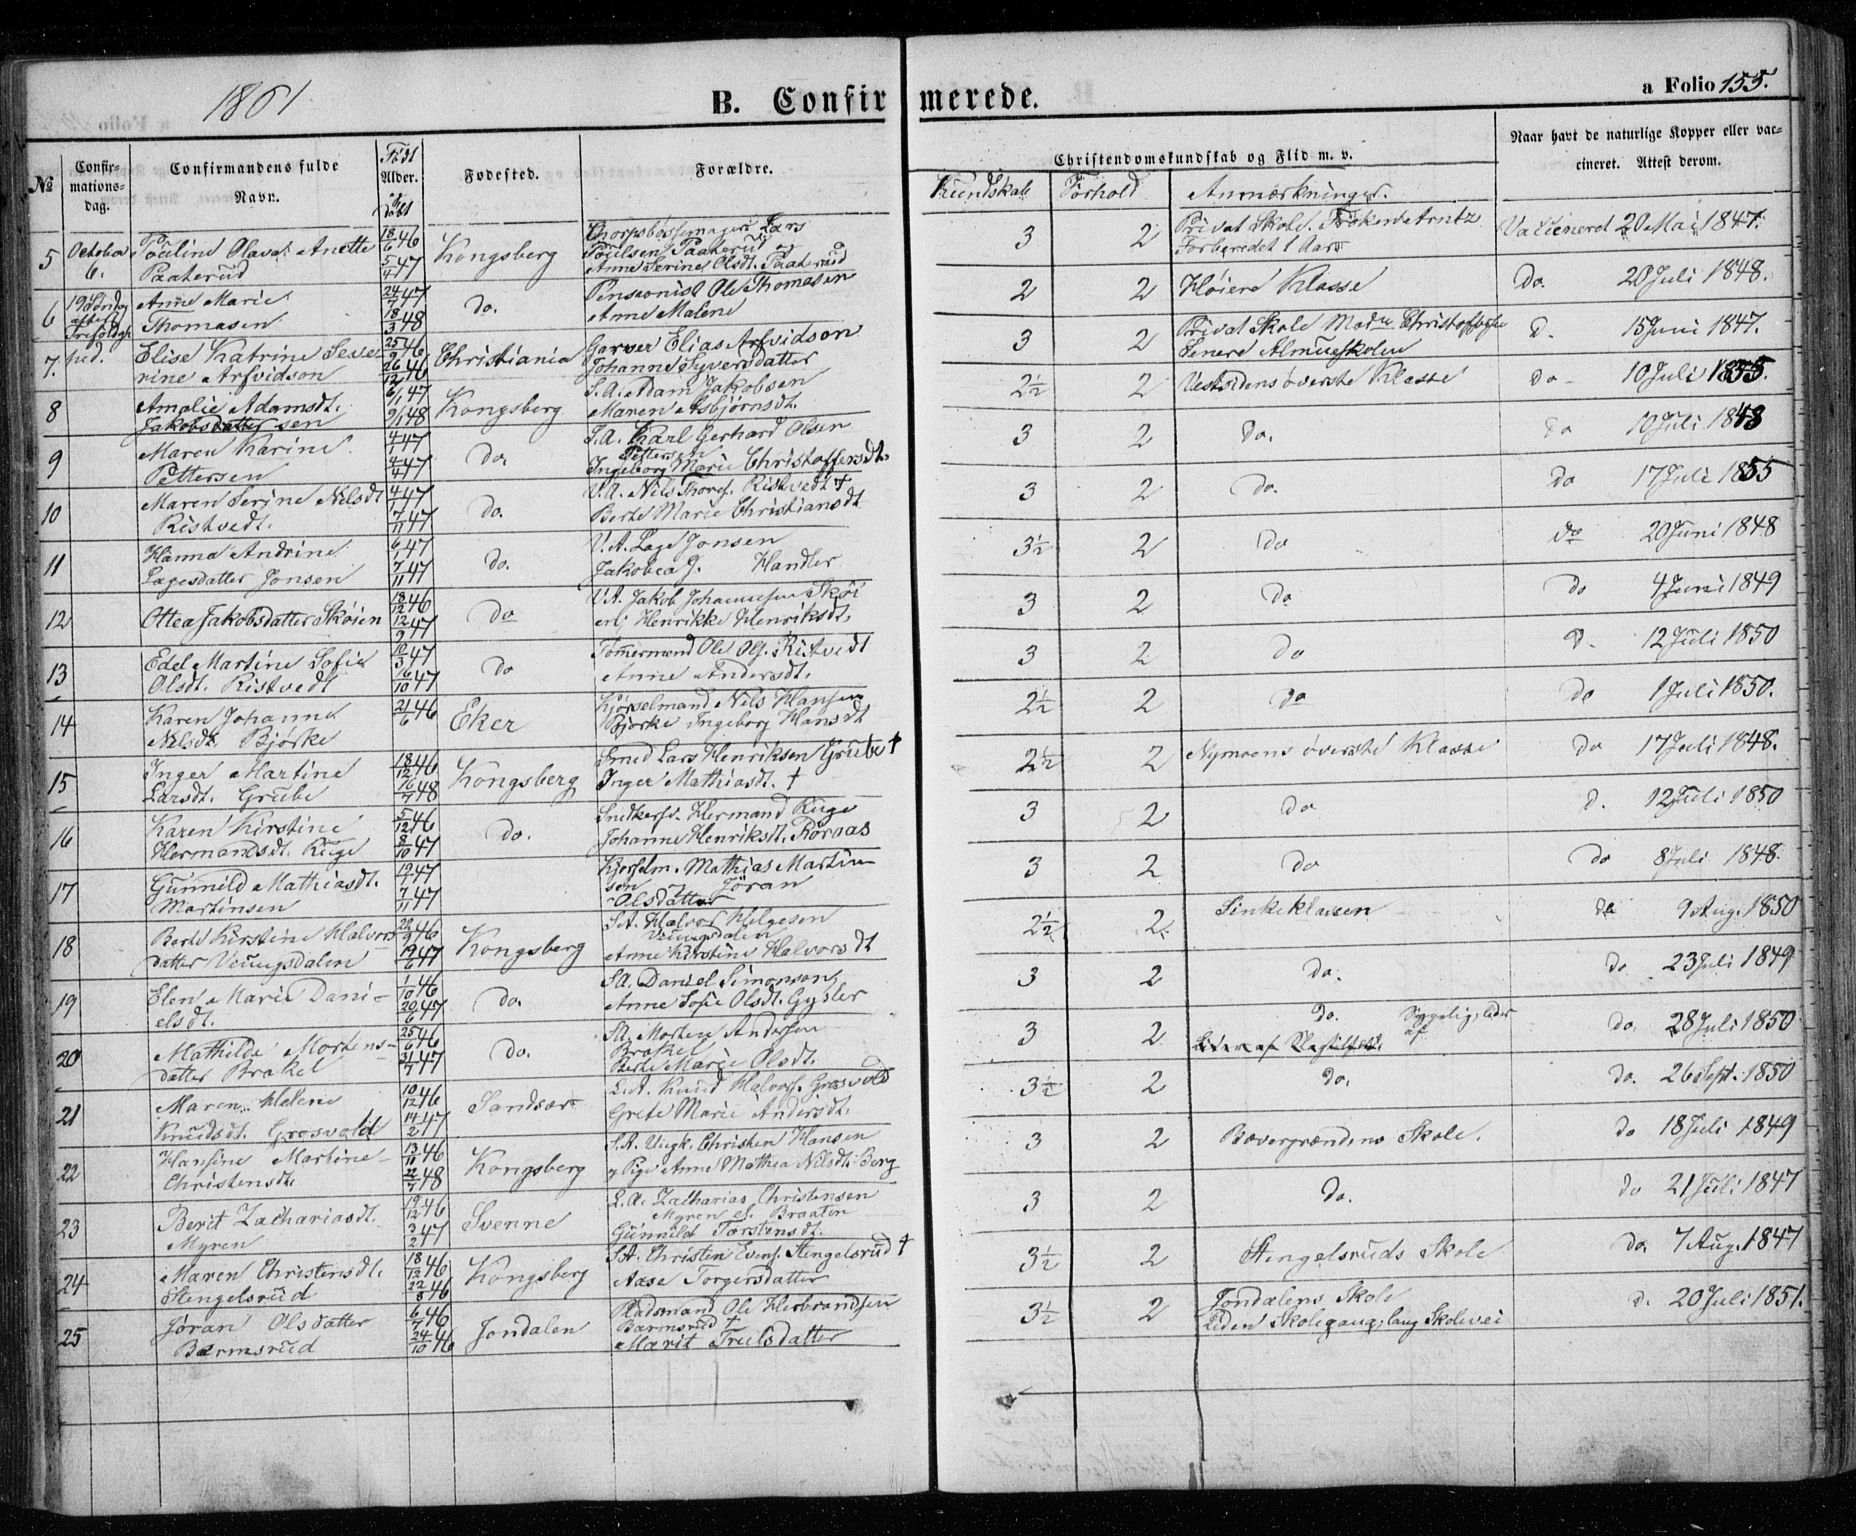 1861
B. Confirmerede.
a Folio 155.
No
Confirmationsdag.
Confirmandens fulde Navn.
Født
Alder.
og Døbt
Fødested.
Forældre.
Christendomskundskab og Flid m. v.
Kundskab
Forhold
Anmærkninger.
Naar havt de naturlige Kopper eller vaccineret. Attest derom.
5 October Pouline Olava Anette 18/6 46 Kongsberg Lars 3 2 Privat Skole. Frøken Arntz Vaccineret 20 Mai 1847.
6. Paaterud 5/4 47 Poulsen Paaterud og Forberedet 1 Aar
Anne Serine Olsdt. Paaterud
6 19 Søndag Anne Marie 24/7 47 do. Pensionist Ole Thomasen 2 2 Høiere Klasse Do. 20 Juli 1848.
efter Trefoldigh. Thomasen 18/3 48 Anne Malene
7. Elise Katrine Seve- 25/9 46 Christiania Garver Elias Arfvidson 3 2 Privat Skole D. 15 Juni 1847.
rine Arfvidson 26/12 46 Johanne Syversdatter Senere Almueskolen
8 Amalie Adamsdt. 6/1 47 Kongsberg S.A. Adam Jakobsen 2½ 2 Vestsidens øverste Klasse Do 10 Juli 1855.
Jakobsdatter sen 9/1 48 Maren Asbjørnsdt.
9 Maren Karine 4/1 47 Do. S.A. Karl Gerhard Olsen 3 2 Do. Do 10 Juli 1848
Pettersen 4/4 47 Pettersen
Ingeborg Marie Christoffersdt.
10 Maren Serine Nilsdt 4/1 47 do. V.A. Nils Thores. Ristvedt † 3 2 Do. Do 17 Juli 1855
Ristvedt. 7/11 47 Berte Marie Christiansdt
11 Hanna Andrine 6/1 47 do. V.A. Lage Jonsen 3½ 2 Do Do 20 Juni 1848
Lagesdatter Jonsen 7/11 47 Jakobea G. Handler
12 Ottea Jakobsdatter Skøien 18/12 46 Do V.A. Jakob Johannesen Skøi- 3 2 Do Do 4 Juni 1849
12/9 47 en, Henrikke Henriksdt.
13 Edel Martine Sofie 10/3 47 Do Tømermand Ole Ols. Ristvedt 3 2 Do D. 12 Juli 1850
Olsdt. Ristvedt 16/10 47 Anne Andersdt.
14 Karen Johanne 21/6 46 Eker Kjørselmand Nils Hansen 2½ 2 Do Do 1 Juli 1850.
Nilsdt. Bjørke Bjørke Ingeborg Hansdt
15 Inger Martine 18/12 46 Kongsberg Smed Lars Henriksen Grube † 2½ 2 Nymoens øverste Klasse Do 17 Juli 1848.
Larsdt. Grube 16/7 48 Inger Mathiasdt. †
16 Karen Kirstine 5/12 46 Do. Snedkersv. Hermand Ruge 3 2 Do D. 12 Juli 1850
Hermandsdt. Ruge 8/10 47 Johanne Henriksdt. Rornas
17 Gunnild Mathiasdt. 47 Kjørselm. Mathias Martin- 3 2 Do Do 8 Juli 1848.
Martinsen 7/11 47 sen Jøran
Olsdatter
18 Berte Kirstine Halvors- 22/9 46 Kongsberg S.A. Halvor Helgesen 2½ 2. Sinkeklassen do 9 Aug. 1850
datter Veungsdalen 19/6 47 Veungsdalen
Anne Kirstine Halvorsdt
19 Elen Marie Dani- 1/10 46 Do. S.A. Daniel Simonsen, 3 2 Do. Do 23 Juli 1849
elsdt. 20/6 47 Anne Sofie Olsdt. Gysler
20 Mathilde Mortens- 25/6 46 Do. S.A. Morten Andersen 3 2 Do. Sygelig, lider Do. 28 Juli 1850
datter Brakel 21/7 47 Brakel af
Berte Marie Olsdt.
21 Maren Helene 10/12 46 Sandsvær L.A. Knud Halvors. Grosvold 3½ 2 Do. Do. 26 Sept. 1850
Knudsdt. Grosvold 14/2 47 Grete Marie Andersdt.
22 Hansine Martine 13/11 46 Kongsberg S.A. Ungk. Christen Hansen 3 2 Bævergrændens Skole. Do 18 Juli 1849
Christensdt. 22/7 48 og Pige Anne Mathea Nilsdt. Berg
23 Berit Zachariasdt. 19/12 46 Svenne L.A. Zacharias Christensen 3 2 Do. Do 21 Juli 1847
Myren 3/2 47 Myren el. Braaten
Gunnild Torstensdt.
24 Maren Christensdt. 18/12 46 Kongsberg S.A. Christen Evens. Stengelsrud † 3½ 2 Stengelsruds Skole Do. 7 Aug. 1847
Stengelsrud 22/8 46 Aase Torgersdatter
25 Jøran Olsdatter 6/7 46 Jondalen Pladsmand Ole Herbrandsen 3½ 2 Jondalens Skole D. 20 Juli 1851.
Bærmsrud 24/10 46 Bærmsrud † Liden Skolegang, lang Skolevei
Marit Trulsdatter